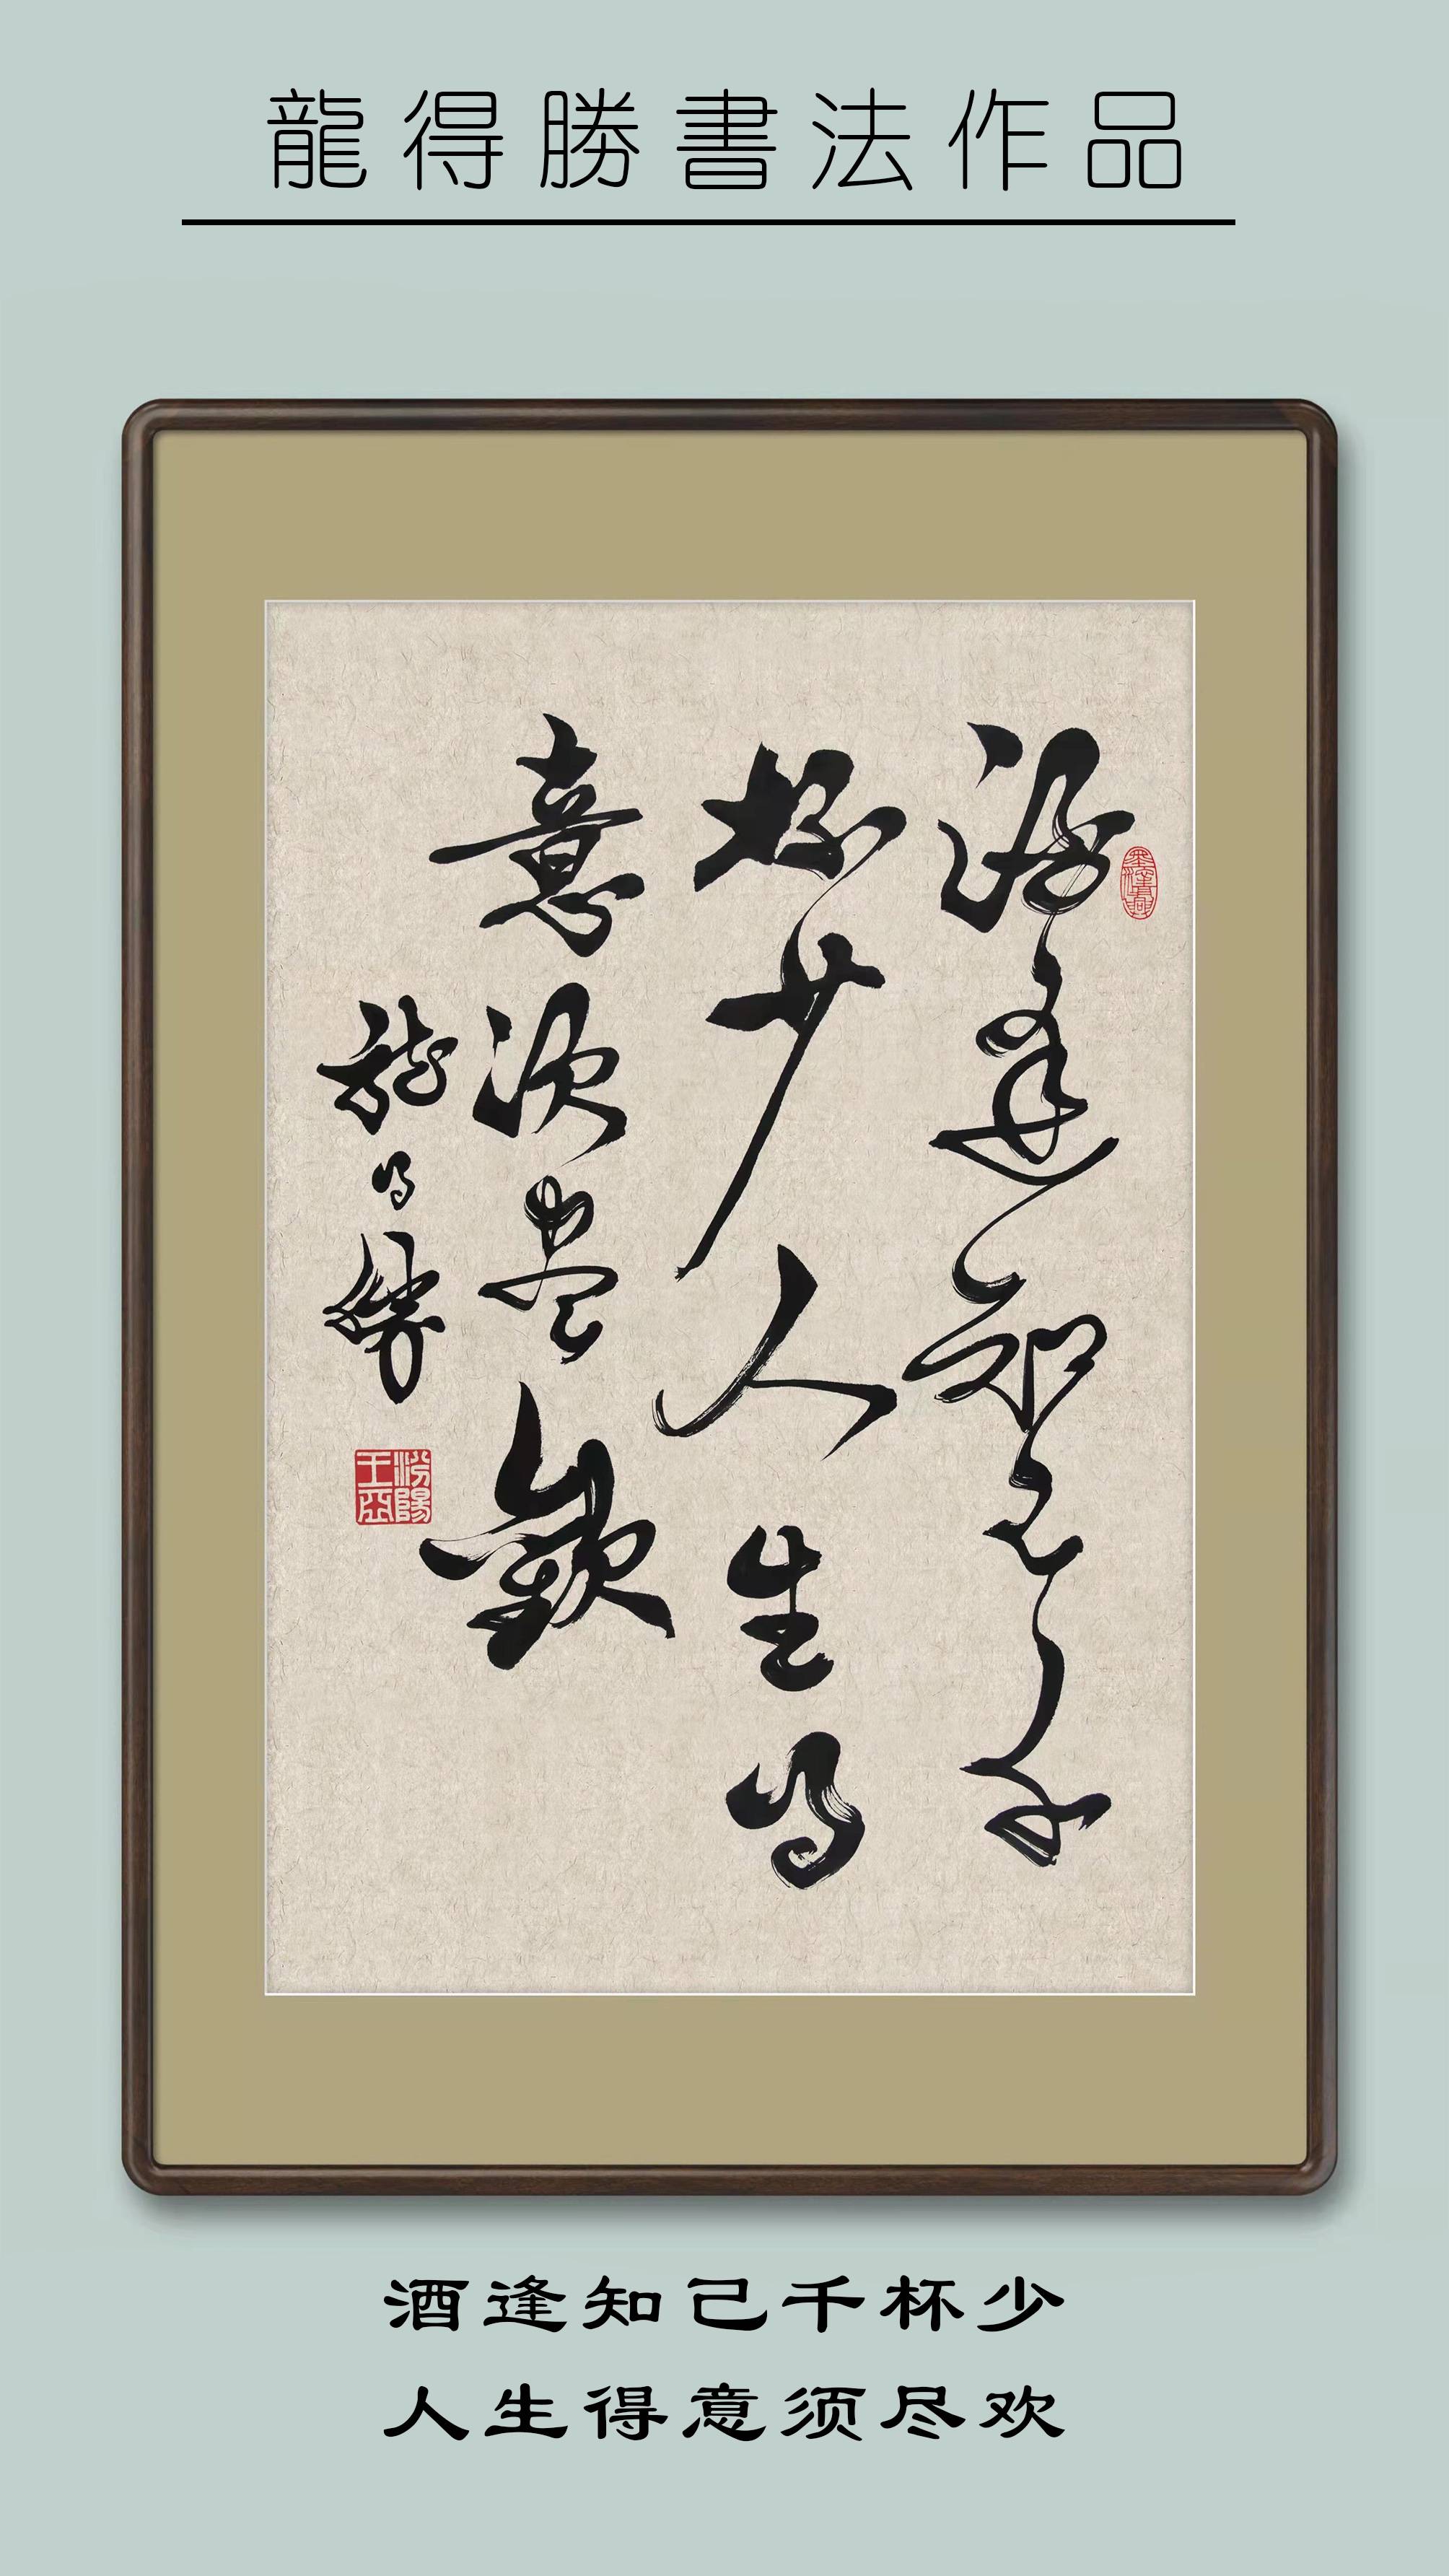 龍得勝書法作品
酒逢知己千
杯少人生得
意须尽歡
龍得勝
汾陽王函
酒逢知己千杯少
人生得意须尽欢